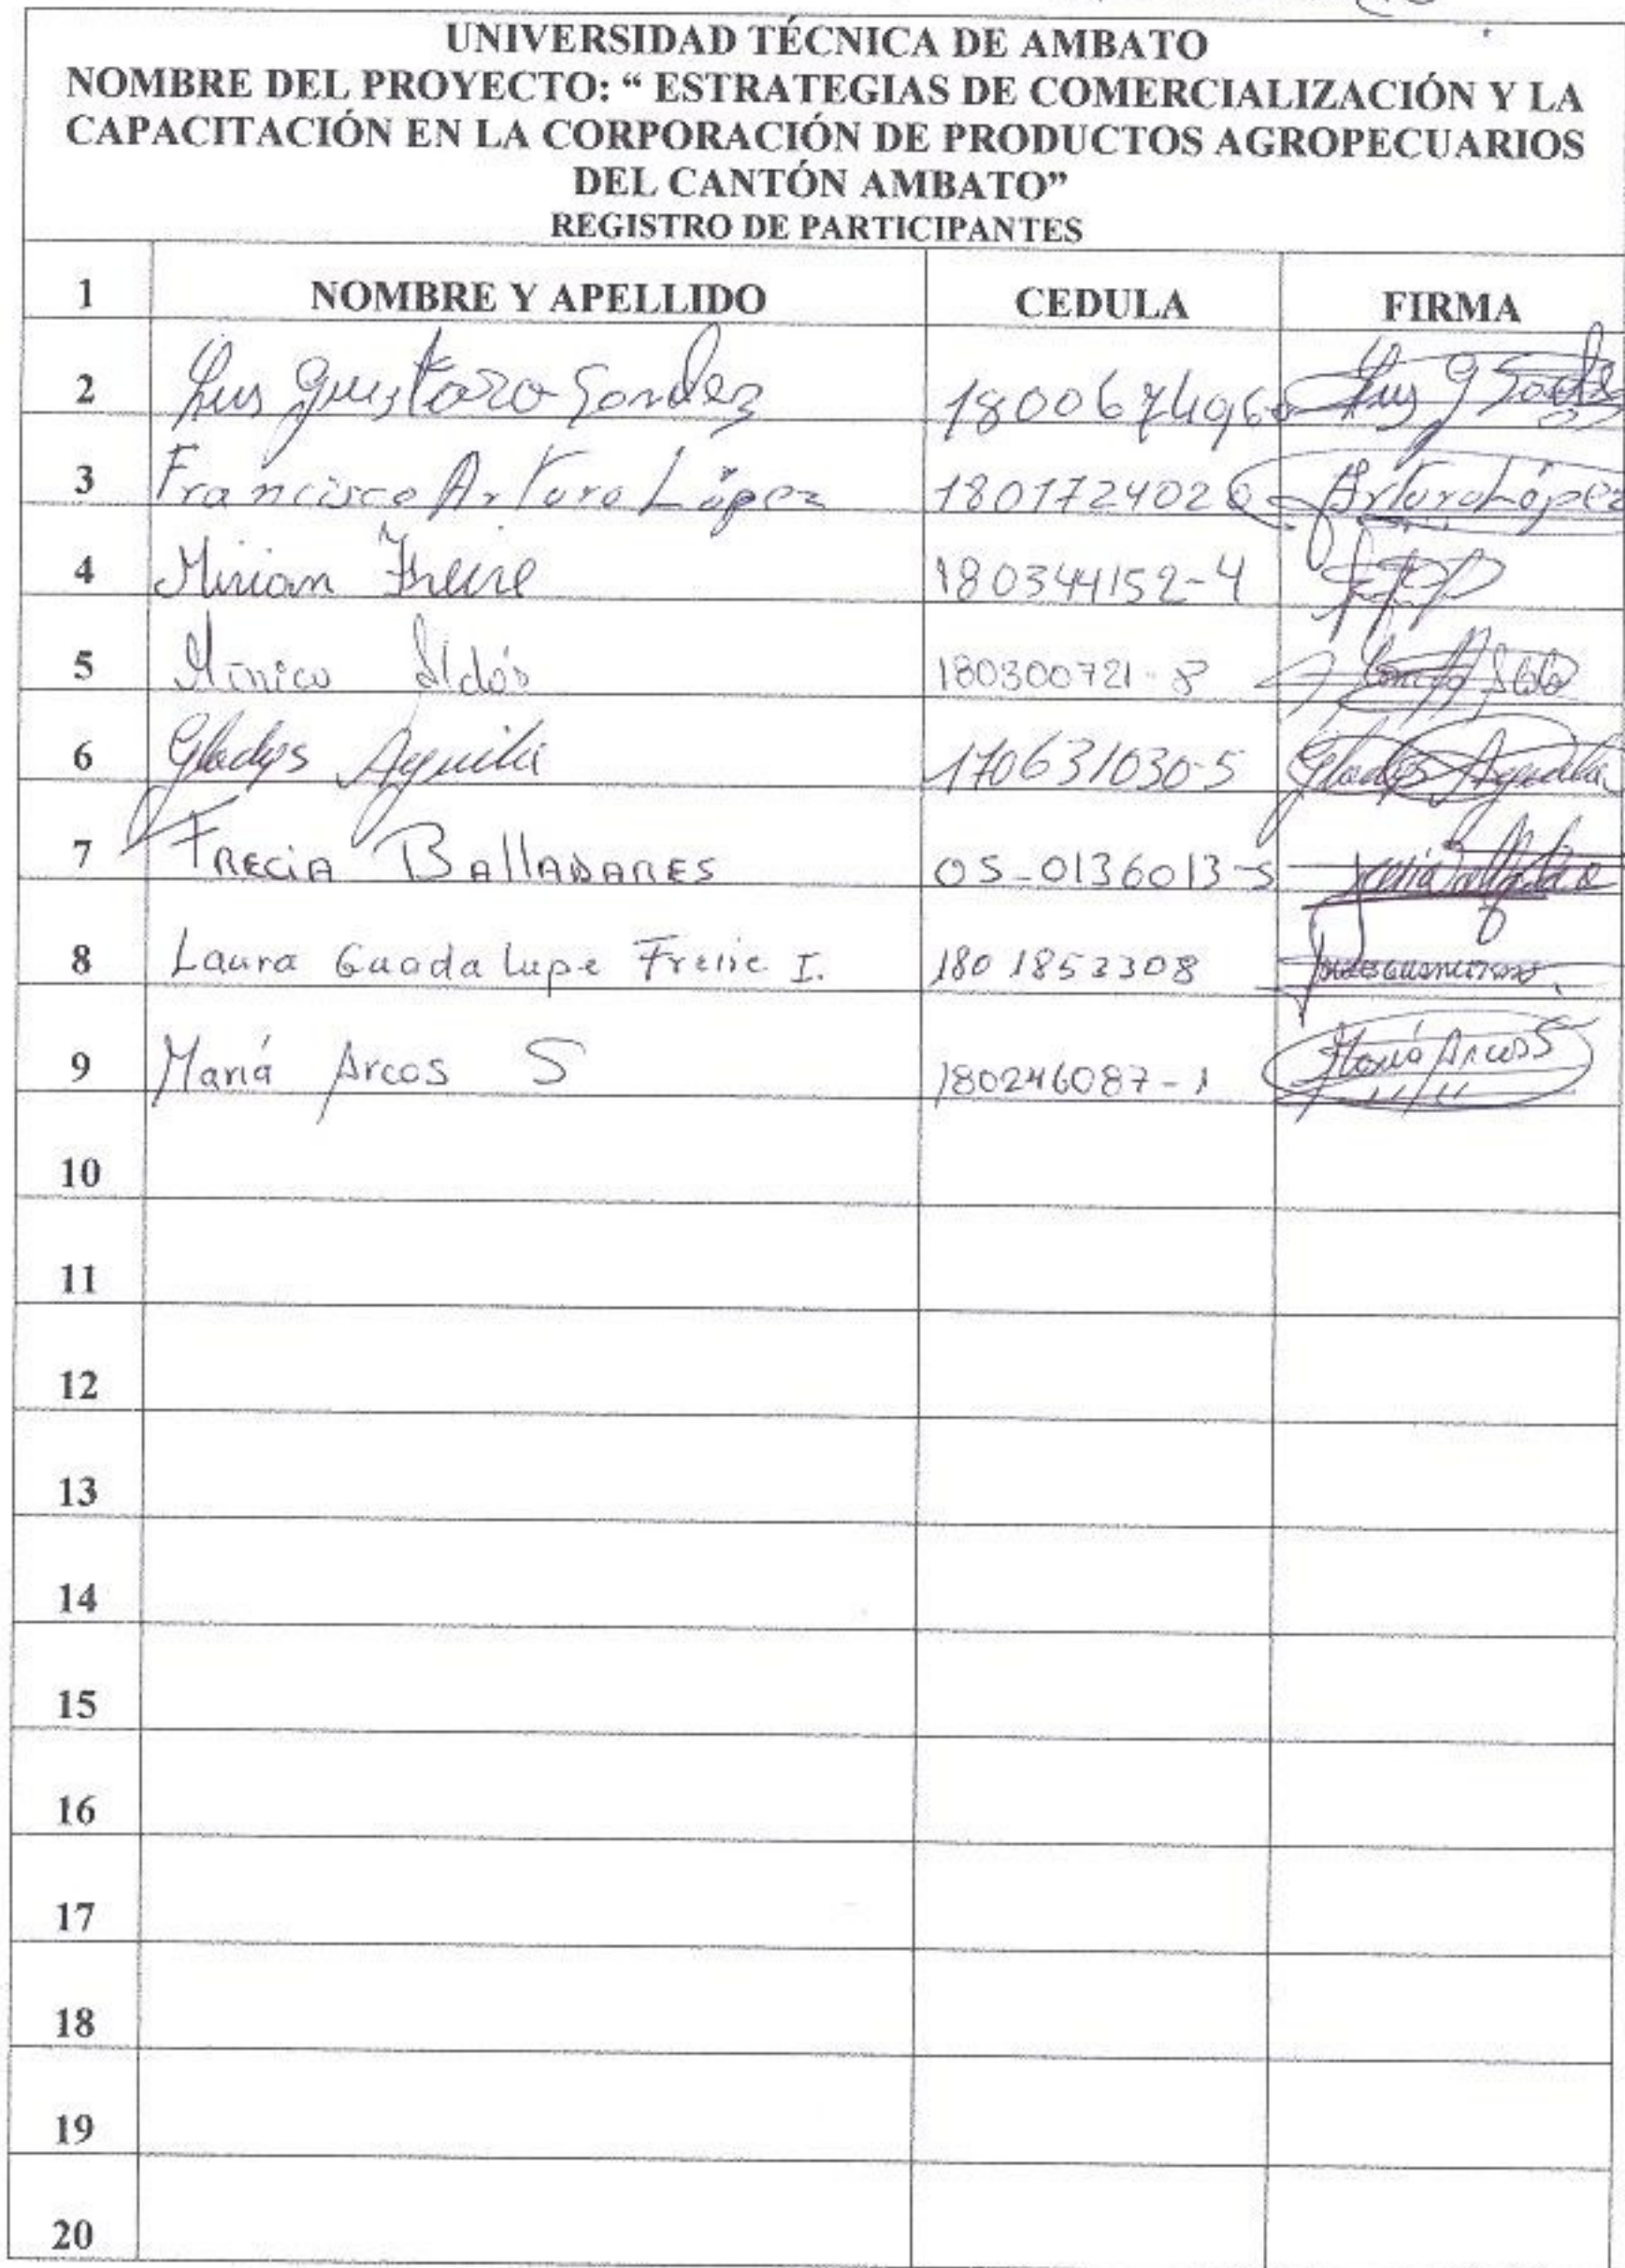 UNIVERSIDAD TÉCNICA DE AMBATO
NOMBRE DEL PROYECTO: “ ESTRATEGIAS DE COMERCIALIZACIÓN Y LA
CAPACITACIÓN EN LA CORPORACIÓN DE PRODUCTOS AGROPECUARIOS
DEL CANTÓN AMBATO”
REGISTRO DE PARTICIPANTES
1 NOMBRE Y APELLIDO CEDULA FIRMA
2 Luis Gustavo
3 Francisco Arturo López 180172402 Arturo López
4 Mirian Freire 180344152-4
5 Mónica Aldás 180300721-8
6 Gladys Aguila 170631030-5 Gladys
7 FRECIA BAllADARES 05-0136013-5
8 Laura Guadalupe Freire I. 1801852308
9 María Arcos S 180246087-1 María Arcos S
10
11
12
13
14
15
16
17
18
19
20